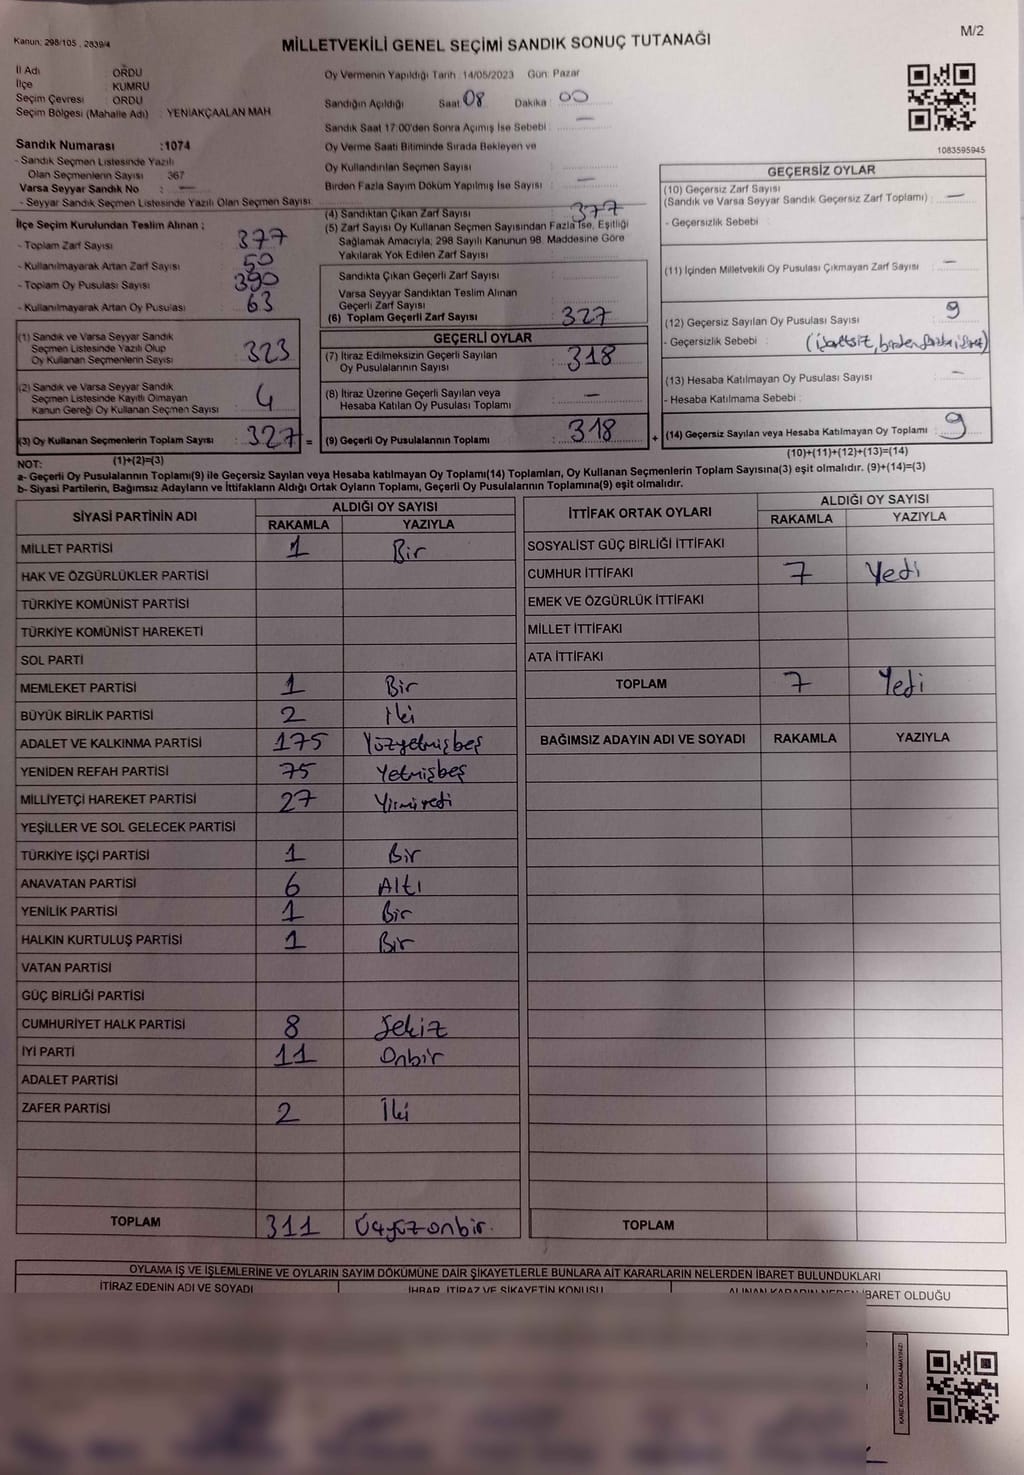 Kanun: 298/105 , 2839/4
MİLLETVEKİLİ GENEL SEÇİMİ SANDIK SONUÇ TUTANAĞI
M/2
İl Adı : ORDU
İlçe : KUMRU
Seçim Çevresi : ORDU
Seçim Bölgesi (Mahalle Adı) : YENİAKÇAALAN MAH
Sandık Numarası :1074
- Sandık Seçmen Listesinde Yazılı
Olan Seçmenlerin Sayısı : 367
Varsa Seyyar Sandık No : —
- Seyyar Sandık Seçmen Listesinde Yazılı Olan Seçmen Sayısı:
Oy Vermenin Yapıldığı Tarih : 14/05/2023 Gün: Pazar
Sandığın Açıldığı Saat: 08 Dakika : 00
Sandık Saat 17:00'den Sonra Açımış İse Sebebi : —
Oy Verme Saati Bitiminde Sırada Bekleyen ve
Oy Kullandırılan Seçmen Sayısı :
Birden Fazla Sayım Döküm Yapılmış İse Sayısı : —
1083595945
İlçe Seçim Kurulundan Teslim Alınan ;
- Toplam Zarf Sayısı : 377
- Kullanılmayarak Artan Zarf Sayısı : 50
- Toplam Oy Pusulası Sayısı : 390
- Kullanılmayarak Artan Oy Pusulası : 63
(1) Sandık ve Varsa Seyyar Sandık
Seçmen Listesinde Yazılı Olup
Oy Kullanan Seçmenlerin Sayısı : 323
(2) Sandık ve Varsa Seyyar Sandık
Seçmen Listesinde Kayıtlı Olmayan
Kanun Gereği Oy Kullanan Seçmen Sayısı : 4
(3) Oy Kullanan Seçmenlerin Toplam Sayısı : 327 =
(1)+(2)=(3)
(4) Sandıktan Çıkan Zarf Sayısı : 377
(5) Zarf Sayısı Oy Kullanan Seçmen Sayısından Fazla İse, Eşitliği
Sağlamak Amacıyla; 298 Sayılı Kanunun 98. Maddesine Göre
Yakılarak Yok Edilen Zarf Sayısı :
Sandıkta Çıkan Geçerli Zarf Sayısı :
Varsa Seyyar Sandıktan Teslim Alınan
Geçerli Zarf Sayısı :
(6) Toplam Geçerli Zarf Sayısı : 327
GEÇERLİ OYLAR
(7) İtiraz Edilmeksizin Geçerli Sayılan
Oy Pusulalarının Sayısı : 318
(8) İtiraz Üzerine Geçerli Sayılan veya
Hesaba Katılan Oy Pusulası Toplamı : —
(9) Geçerli Oy Pusulalarının Toplamı : 318 +
GEÇERSİZ OYLAR
(10) Geçersiz Zarf Sayısı
(Sandık ve Varsa Seyyar Sandık Geçersiz Zarf Toplamı) : —
- Geçersizlik Sebebi :
(11) İçinden Milletvekili Oy Pusulası Çıkmayan Zarf Sayısı : —
(12) Geçersiz Sayılan Oy Pusulası Sayısı : 9
- Geçersizlik Sebebi : (işaretsiz, birden
(13) Hesaba Katılmayan Oy Pusulası Sayısı : —
- Hesaba Katılmama Sebebi :
(14) Geçersiz Sayılan veya Hesaba Katılmayan Oy Toplamı : 9
(10)+(11)+(12)+(13)=(14)
NOT:
a- Geçerli Oy Pusulalarının Toplamı(9) ile Geçersiz Sayılan veya Hesaba katılmayan Oy Toplamı(14) Toplamları, Oy Kullanan Seçmenlerin Toplam Sayısına(3) eşit olmalıdır. (9)+(14)=(3)
b- Siyasi Partilerin, Bağımsız Adayların ve İttifakların Aldığı Ortak Oyların Toplamı, Geçerli Oy Pusulalarının Toplamına(9) eşit olmalıdır.
SİYASİ PARTİNİN ADI ALDIĞI OY SAYISI
RAKAMLA YAZIYLA
MİLLET PARTİSİ 1 Bir
HAK VE ÖZGÜRLÜKLER PARTİSİ
TÜRKİYE KOMÜNİST PARTİSİ
TÜRKİYE KOMÜNİST HAREKETİ
SOL PARTİ
MEMLEKET PARTİSİ 1 Bir
BÜYÜK BİRLİK PARTİSİ 2 İki
ADALET VE KALKINMA PARTİSİ 175 Yüzyetmişbeş
YENİDEN REFAH PARTİSİ 75 Yetmişbeş
MİLLİYETÇİ HAREKET PARTİSİ 27 Yirmiyedi
YEŞİLLER VE SOL GELECEK PARTİSİ
TÜRKİYE İŞÇİ PARTİSİ 1 Bir
ANAVATAN PARTİSİ 6 Altı
YENİLİK PARTİSİ 1 Bir
HALKIN KURTULUŞ PARTİSİ 1 Bir
VATAN PARTİSİ
GÜÇ BİRLİĞİ PARTİSİ
CUMHURİYET HALK PARTİSİ 8 Sekiz
İYİ PARTİ 11 Onbir
ADALET PARTİSİ
ZAFER PARTİSİ 2 İki
TOPLAM 311 Üçyüzonbir.
İTTİFAK ORTAK OYLARI ALDIĞI OY SAYISI
RAKAMLA YAZIYLA
SOSYALİST GÜÇ BİRLİĞİ İTTİFAKI
CUMHUR İTTİFAKI 7 Yedi
EMEK VE ÖZGÜRLÜK İTTİFAKI
MİLLET İTTİFAKI
ATA İTTİFAKI
TOPLAM 7 Yedi
BAĞIMSIZ ADAYIN ADI VE SOYADI RAKAMLA YAZIYLA
TOPLAM
OYLAMA İŞ VE İŞLEMLERİNE VE OYLARIN SAYIM DÖKÜMÜNE DAİR ŞİKAYETLERLE BUNLARA AİT KARARLARIN NELERDEN İBARET BULUNDUKLARI
İTİRAZ EDENİN ADI VE SOYADI İHBAR, İTİRAZ VE ŞİKAYETİN KONUSU ALINAN KARARIN NEDEN İBARET OLDUĞU
KARE KODU KARALAMAYINIZ!